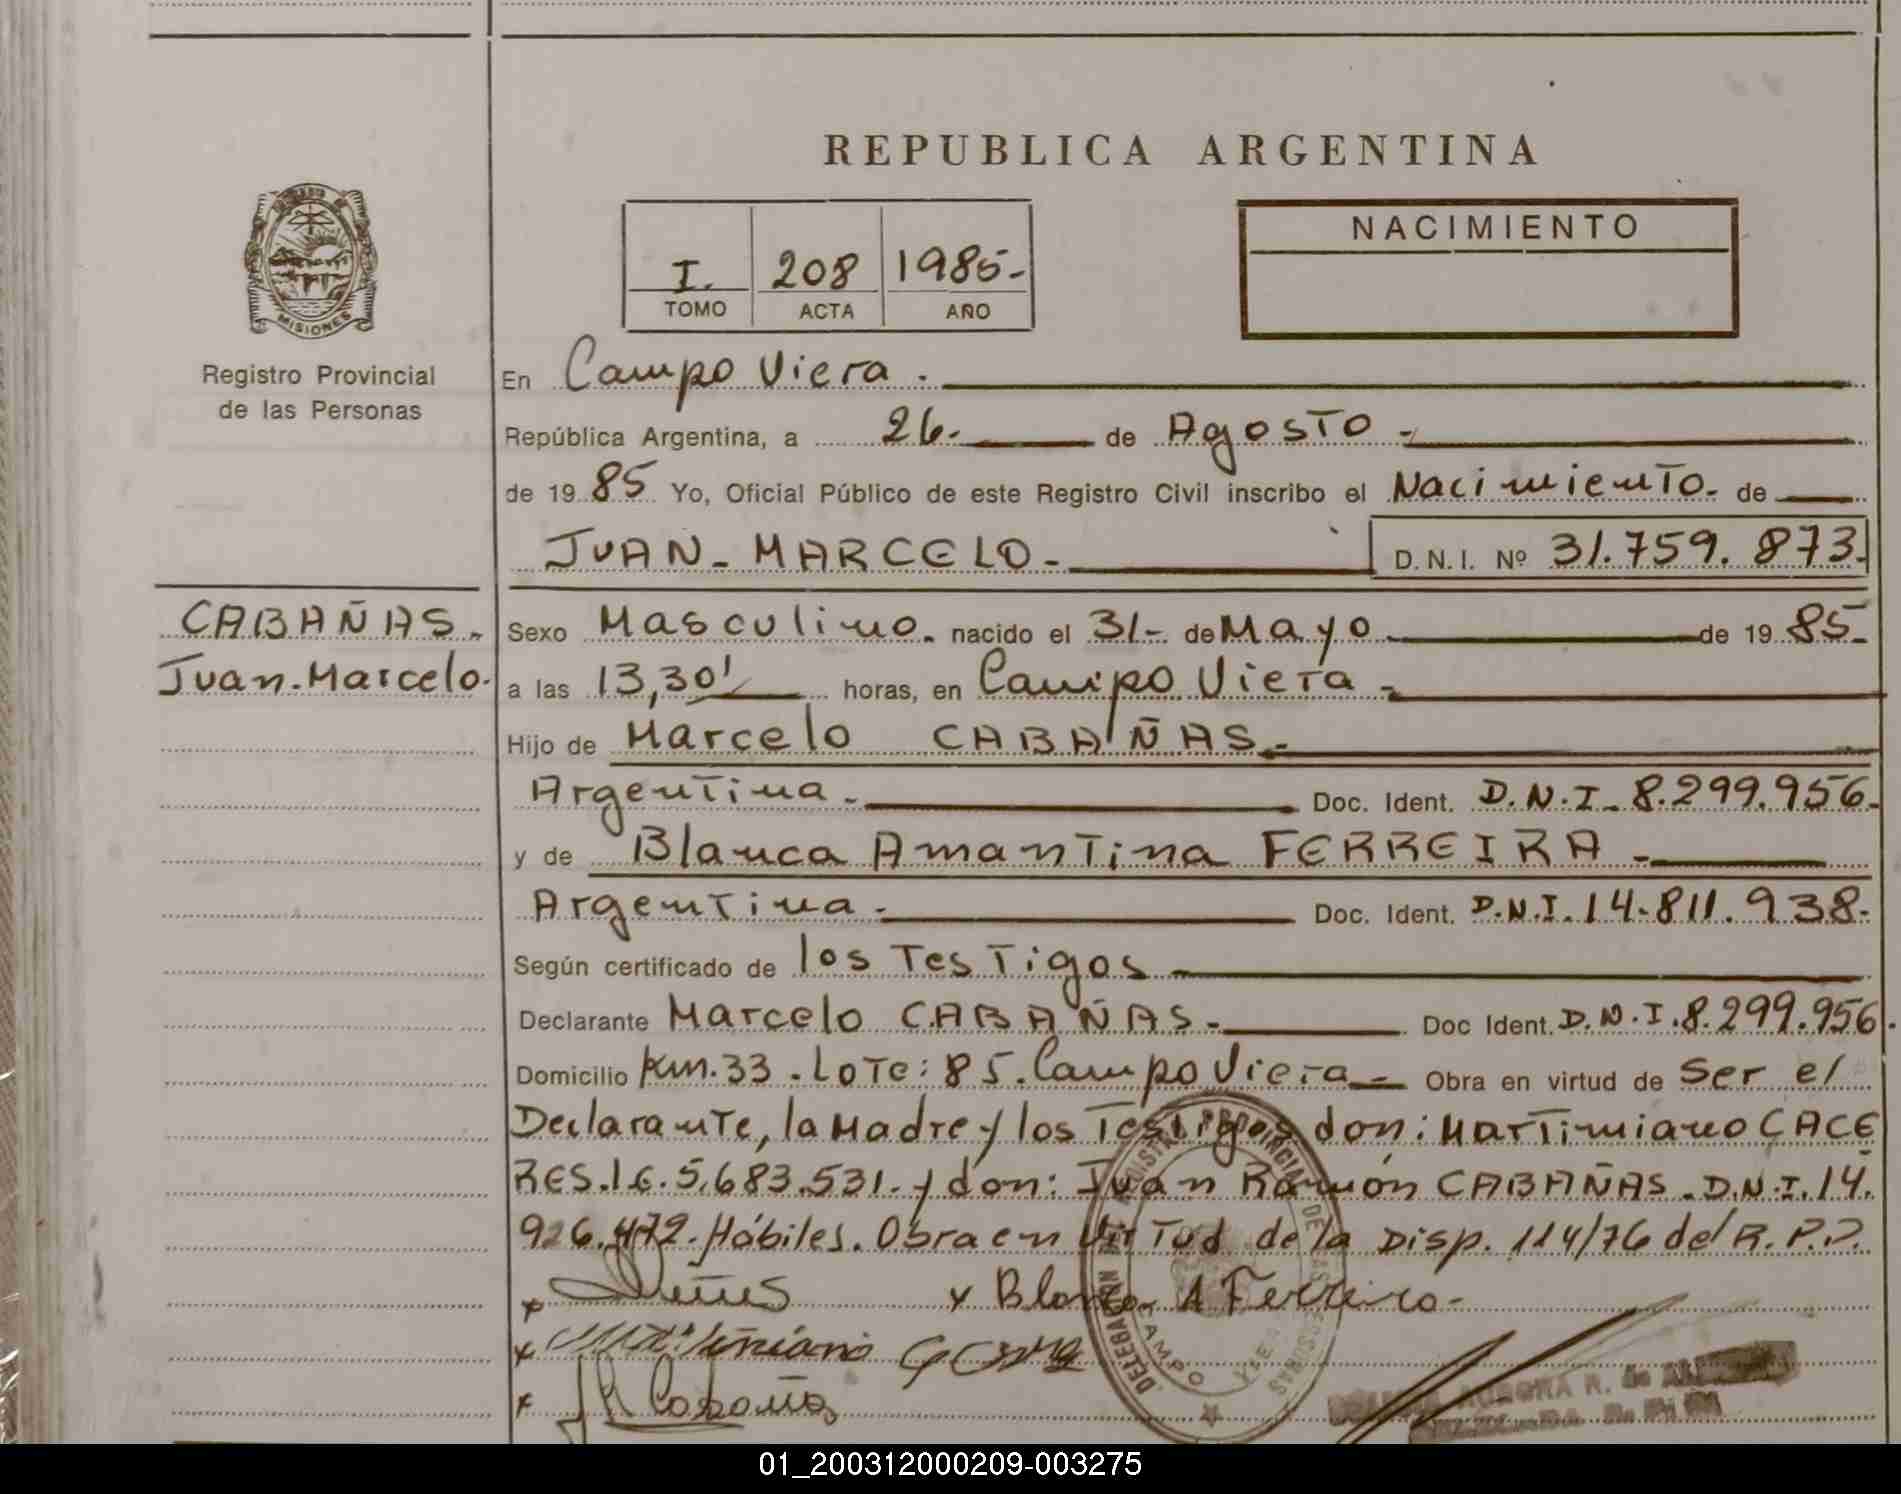 REPUBLICA ARGENTINA
NACIMIENTO
I. 208 1985-
TOMO ACTA AÑO
MISIONES
Registro Provincial
de las Personas
En Campo Viera.
República Argentina, a 26- de Agosto-
de 1985 Yo, Oficial Público de este Registro Civil inscribo el Nacimiento- de
JUAN-MARCELO- D.N.I. Nº 31.759.873-
CABAÑAS-
Juan-Marcelo-
Sexo Masculino- nacido el 31- de Mayo de 1985-
a las 13,30' horas, en Campo Viera-
Hijo de Marcelo CABAÑAS-
Argentina- Doc. Ident. D.N.I. 8.299.956-
y de Blanca Amantina FERREIRA-
Argentina- Doc. Ident. D.N.I. 14.811.938-
Según certificado de los Testigos-
Declarante Marcelo CABAÑAS- Doc Ident. D.N.I. 8.299.956.
Domicilio Km.33.Lote: 85. Campo Viera- Obra en virtud de Ser el
Declarante, la Madre y los Testigos don: Martimiano CACE
RES.l.E.5.683.531.-y don: Juan Ramón CABAÑAS.D.N.I.14.
926.472.Hábiles. Obra en Virtud de la Disp. 114/76 del R.P.P.
x x Blanca A Ferreira-
x
x Cabañas
DELEGACIÓN REGISTRO PROVINCIAL DE LAS PERSONAS
CAMPO VIERA
AURORA R. de
01_200312000209-003275